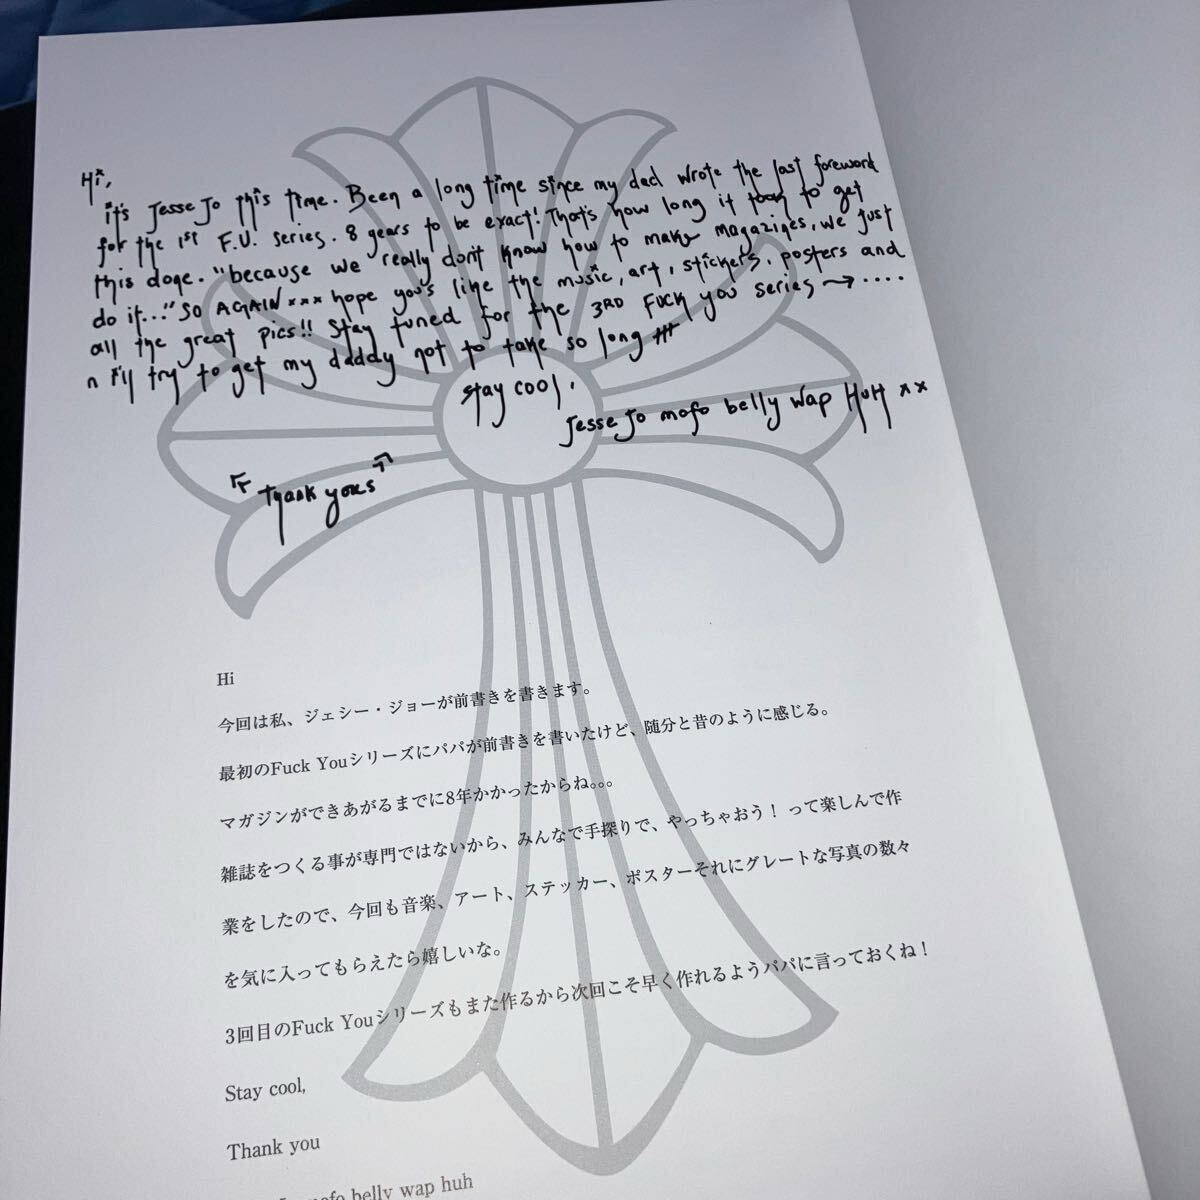 Hi,
it's Jesse Jo this time. Been a long time since my dad wrote the last foreword
for the 1st F.U. series. 8 years to be exact! That's how long it took to get
this done. "because we really dont know how to make magazines, we just
do it..." SO AGAIN xxx hope you's like the music, art, stickers, posters and
all the great pics!! Stay tuned for the 3RD FUCK you series → ....
n i'll try to get my daddy not to take so long
stay cool.
Jesse Jo mofo belly wap HUH xx
Thank yous
Hi
今回は私、ジェシー・ジョーが前書きを書きます。
最初のFuck Youシリーズにパパが前書きを書いたけど、随分と昔のように感じる。
マガジンができあがるまでに8年かかったからね。。。
雑誌をつくる事が専門ではないから、みんなで手探りで、やっちゃおう！って楽しんで作
業をしたので、今回も音楽、アート、ステッカー、ポスターそれにグレートな写真の数々
を気に入ってもらえたら嬉しいな。
3回目のFuck Youシリーズもまた作るから次回こそ早く作れるようパパに言っておくね！
Stay cool,
Thank you
mofo belly wap huh